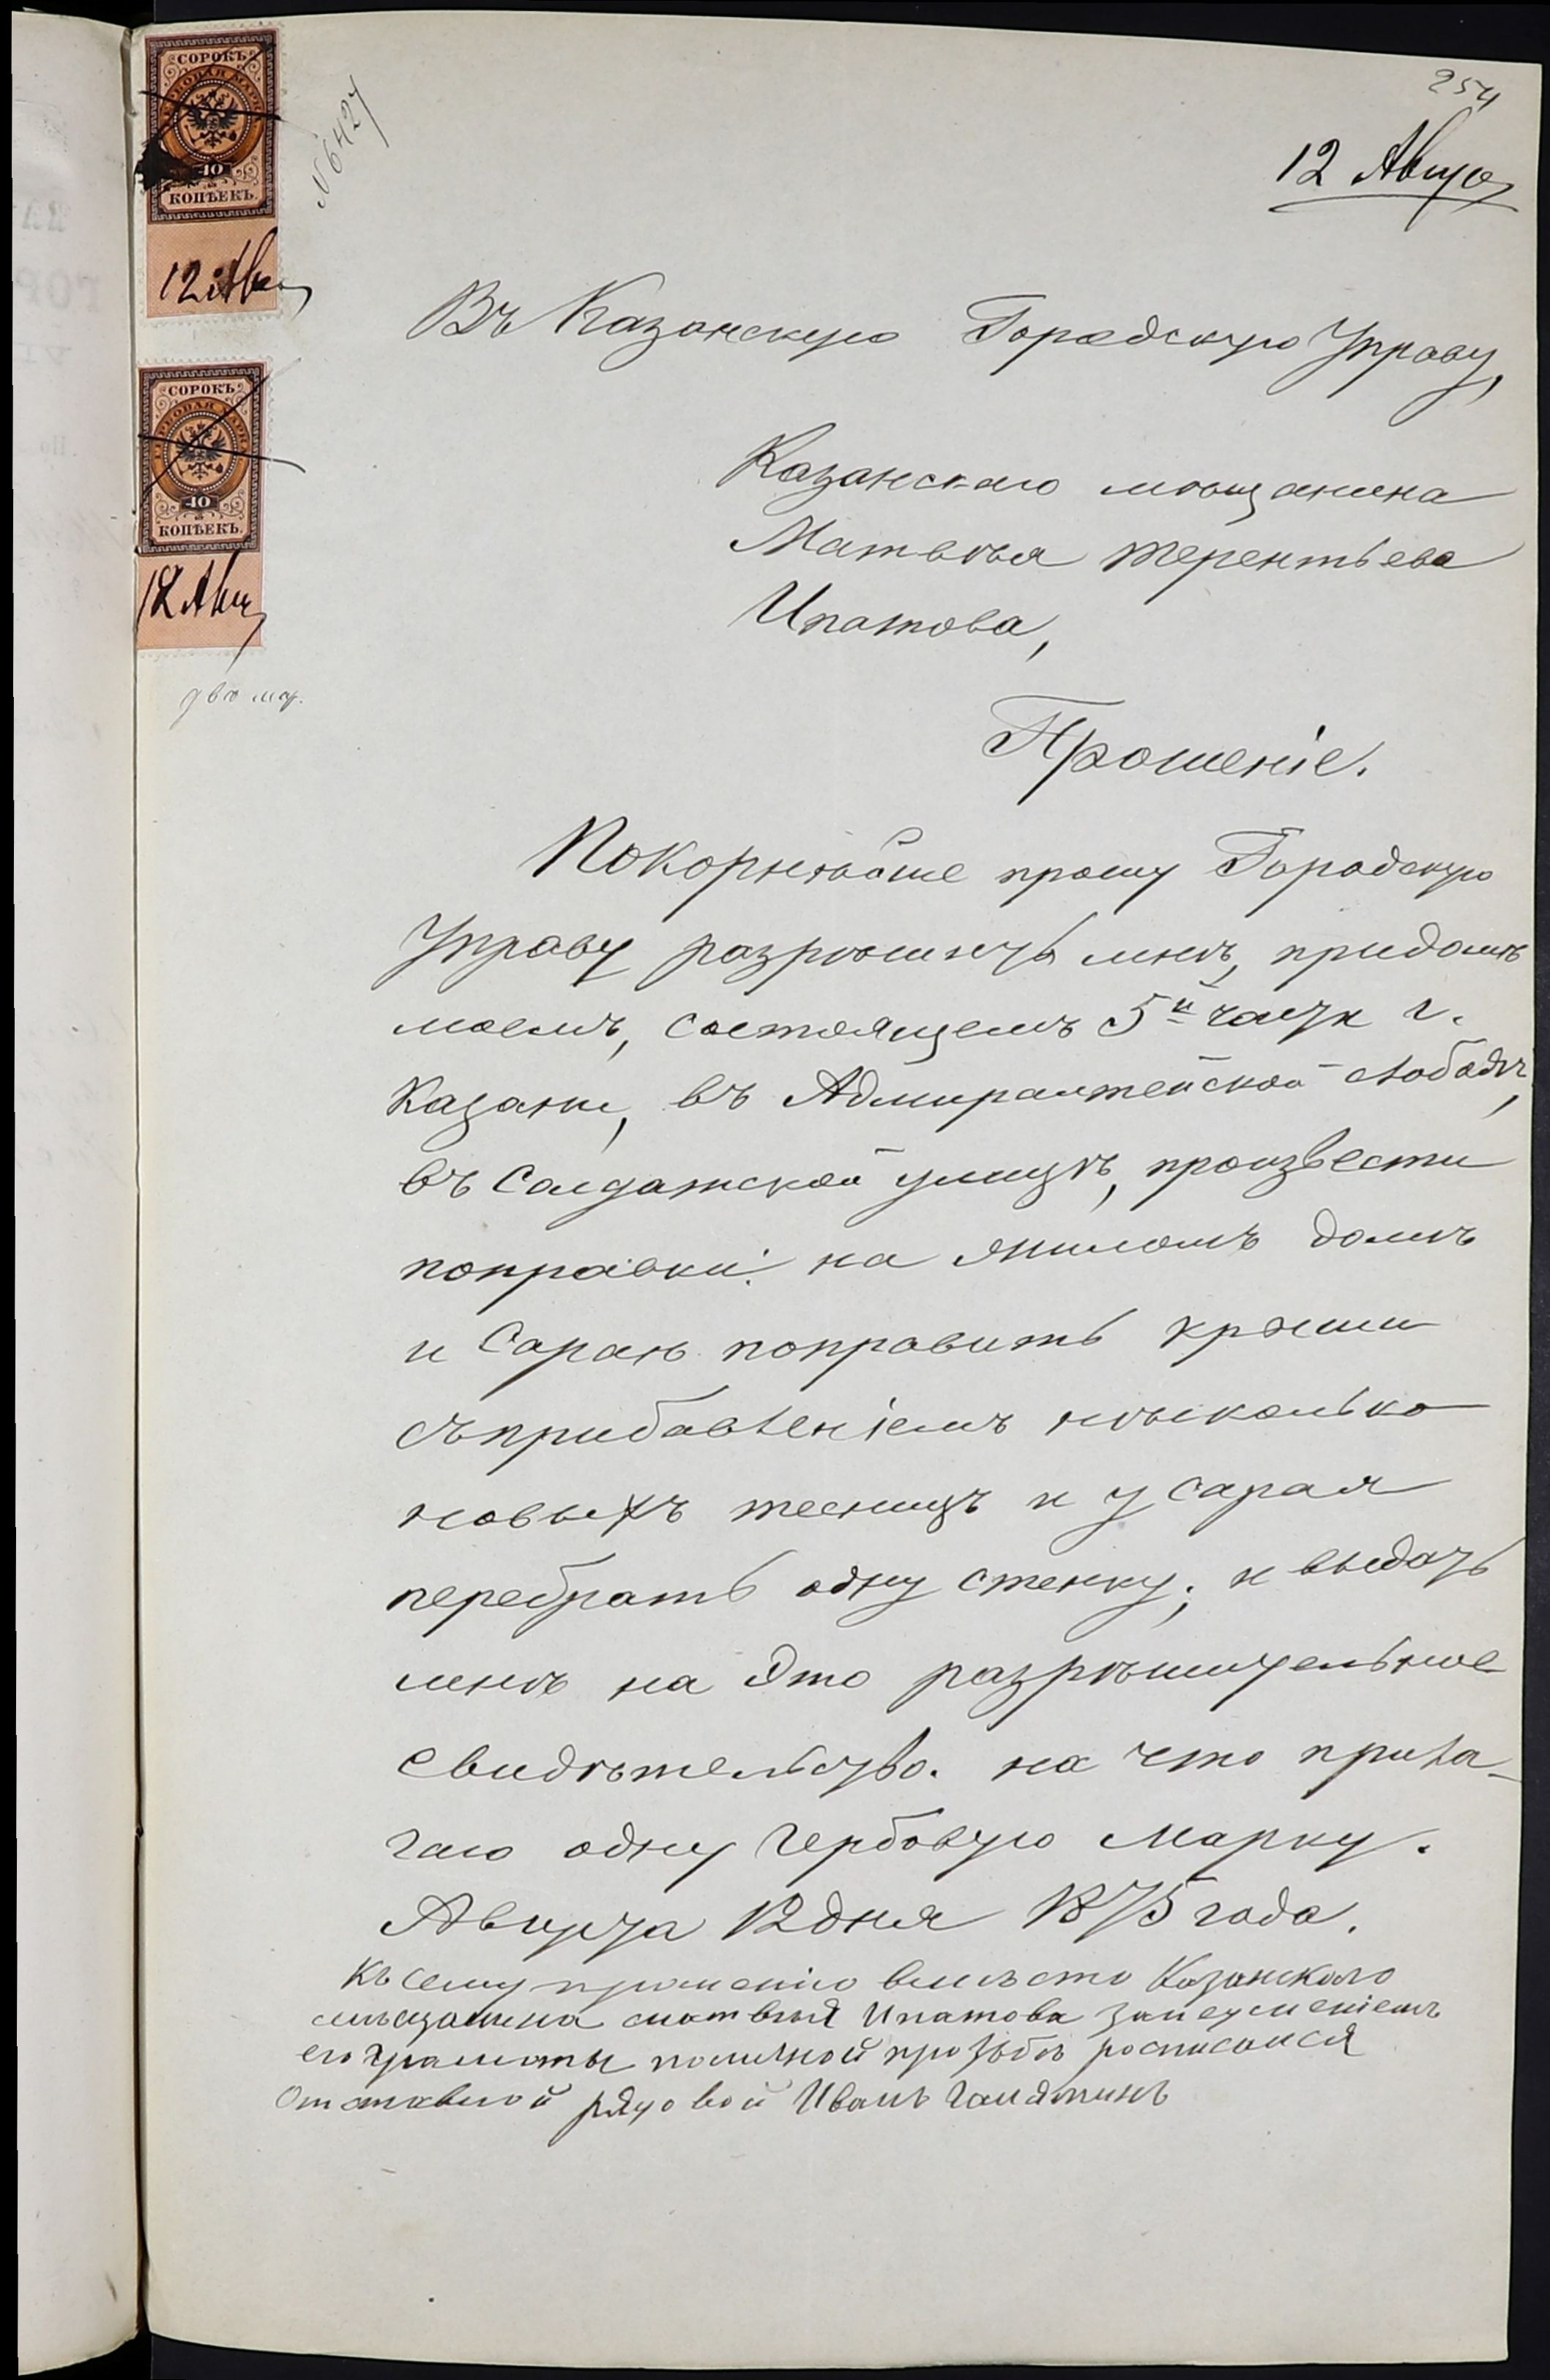 254
12 Авгу
№ 6427
СОРОКЪ
ГЕРБОВАЯ МАРКА
40
КОПѢЕКЪ.
12 Авг
СОРОКЪ
ГЕРБОВАЯ МАРКА
40
КОПѢЕКЪ.
12 Авг
двѣ мар.
Въ Казанскую Городскую Управу,
Казанскаго мѣщанина
Матвѣя Терентьева
Ипатова,
Прошеніе.
Покорнѣйше прошу Городскую
Управу разрѣшить мнѣ, придомѣ
моемъ, состоящемъ 5й части г.
Казани, въ Адмиралтейской слободѣ,
въ Салдатской улицѣ, произвести
поправки: на жиломъ домѣ
и Сараѣ поправить крыши
съприбавленіемъ нѣсколько
новыхъ тесницъ и у сарая
перебрать одну стенку; и выдать
мнѣ на это разрѣшительное
свидѣтельство. на что прила-
гаю одну гербовую марку.
Августа 12 дня 1875 года.
Къ сему прошенію вмѣсто Казанскаго
мѣщанина матвѣя Ипатова занеуменіемъ
его грамоты поличной прозьбѣ росписался
Отставной рядовой Иванъ